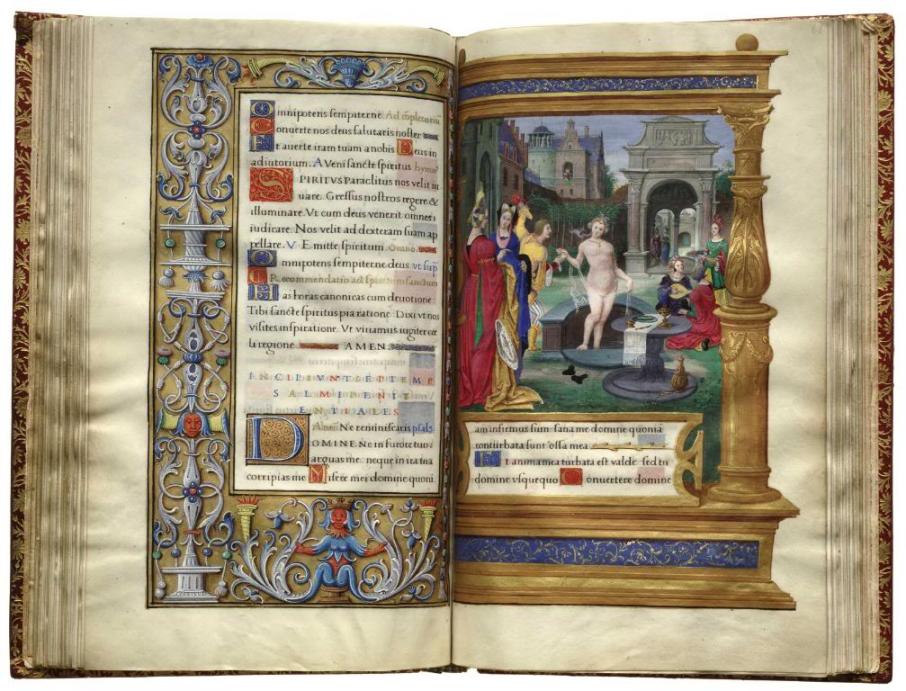 Omnipotens sempiterne. Ad completoriu
Converte nos deus salutaris noster
Et averte iram tuam a nobis Deus in
adiutorium. A Veni sancte spiritus hymn
SPIRITUS Paraclitus nos velit iu
vare. Gressus nostros regere &
illuminare. Ut cum deus venerit omnes
iudicare. Nos velit ad dexteram suam ap
pellare. V Emitte spiritum Oratio
Omnipotens sempiterne deus. ut sup
Recommendatio ad spiritum sanctum
Has horas canonicas cum devotione
Tibi sancte spiritus pia ratione Dixi ut nos
visites inspiratione. Ut vivamus iugiter cæ
li regione AMEN
INCIPIUNT SEPTEM P
SALMI PENIT
ENTIALES
Ne reminiscaris psal
DOMINE Ne in furore tuo
arguas me: neque in ira tua
corripias me Misere mei domine quoni
am infirmus sum: sana me domine quonia
conturbata sunt ossa mea
Et anima mea turbata est valde sed tu
domine usquequo Convertere domine